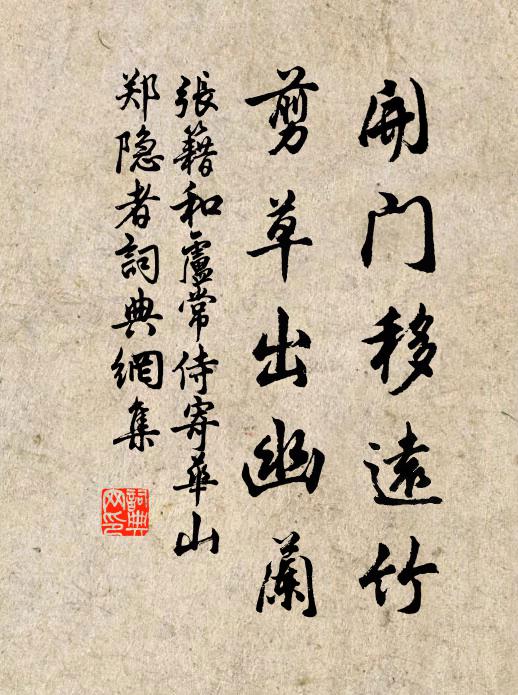 開门移遠竹
剪草出幽蘭
張籍和盧常侍寄華山
郑隐者詞典網集
詞典网印